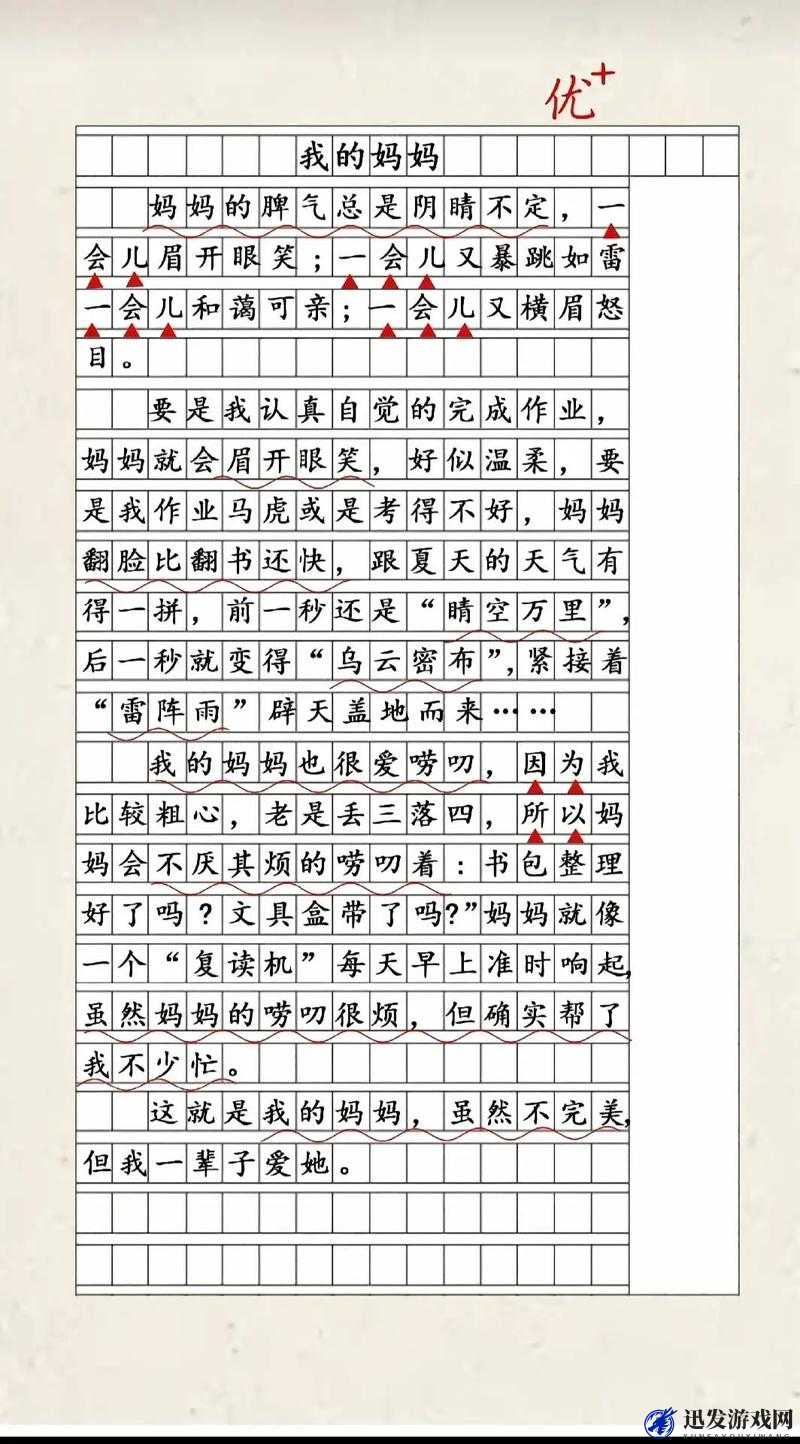 优+
我的妈妈
妈妈的脾气总是阴晴不定，一
会儿眉开眼笑；一会儿又暴跳如雷
一会儿和蔼可亲；一会儿又横眉怒
目。
要是我认真自觉的完成作业，
妈妈就会眉开眼笑，好似温柔，要
是我作业马虎或是考得不好，妈妈
翻脸比翻书还快，跟夏天的天气有
得一拼，前一秒还是“晴空万里”，
后一秒就变得“乌云密布”，紧接着
“雷阵雨”辟天盖地而来……
我的妈妈也很爱唠叨，因为我
比较粗心，老是丢三落四，所以妈
妈会不厌其烦的唠叨着：书包整理
好了吗？文具盒带了吗？”妈妈就像
一个“复读机”每天早上准时响起，
虽然妈妈的唠叨很烦，但确实帮了
我不少忙。
这就是我的妈妈，虽然不完美，
但我一辈子爱她。
迅发游戏网
XUNFAYOUXIWANG